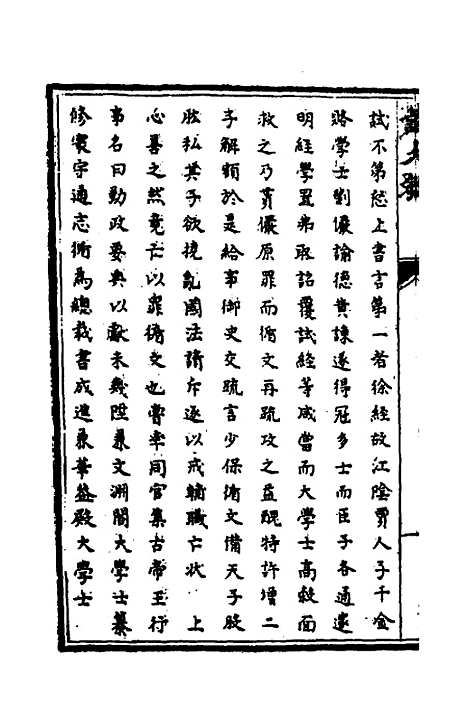 試不第愁上書言第一若徐經故江陰賈人子千金
賂學士劉儼諭德黃諫遂得冠多士而臣子各通邃
明經學置弗取詔覆試經等咸當而大學士高穀面
救之乃貰儼原罪而循文再疏攻之益醜特許增二
子解額於是給事御史交疏言少保循文備天子股
肱私其子欲撓亂國法請斥逐以戒輔職亡狀　上
心善之然竟亡以罪循文也嘗率同官集古帝王行
事名曰勤政要典以獻未幾陞兼文淵閣大學士纂
修寰宇通志循為總裁書成進兼華盖殿大學士